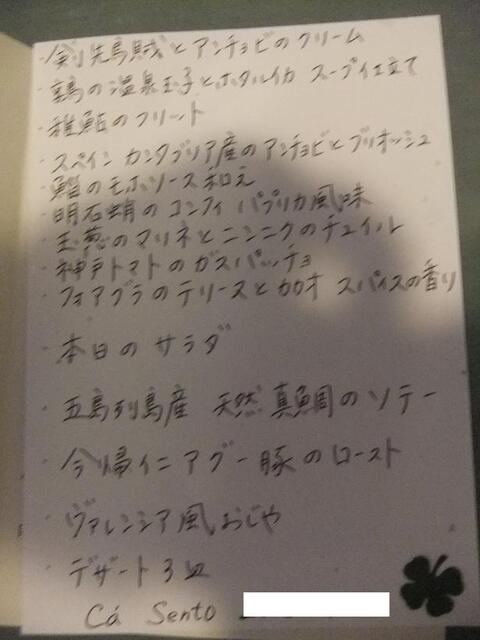 ・剣先烏賊とアンチョビのクリーム
・鶉の温泉玉子とホタルイカ スープ仕立て
・稚鮎のフリット
・スペイン カンタブリア産のアンチョビとブリオッシュ
・鮨のモホソース和え
・明石蛸のコンフィ パプリカ風味
・玉葱のマリネとニンニクのチュイル
・神戸トマトのガスパッチョ
・フォアグラのテリーヌとカカオ スパイスの香り
・本日のサラダ
・五島列島産 天然真鯛のソテー
・今帰仁アグー豚のロースト
・ヴァレンシア風おじや
・デザート3皿
Cá Sento